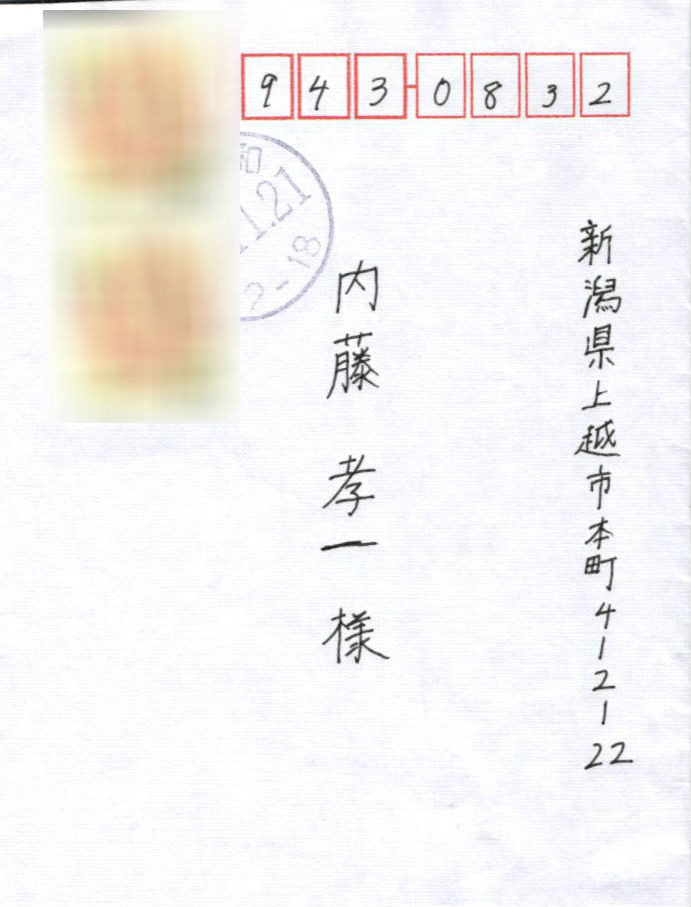 943-0832
新潟県上越市本町4-2-22
内藤 孝一 様
和
.11.21
2-18